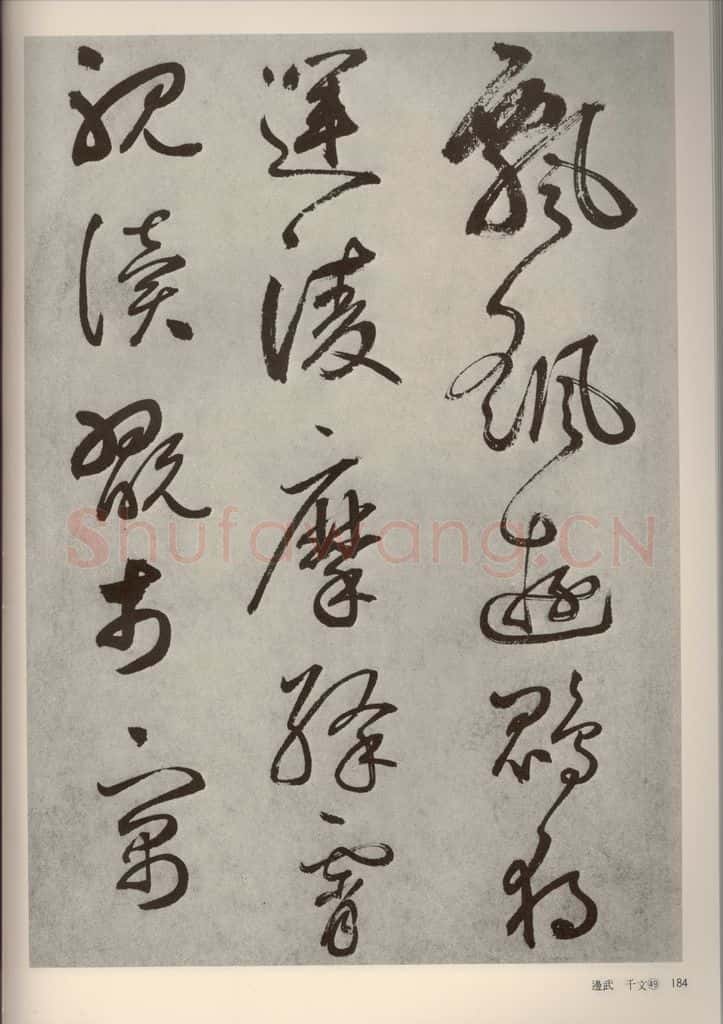 飄飖遊鵾獨
運淩摩絳霄
耽讀翫市寓
Shufawang.CN
邊武 千文㊾ 184